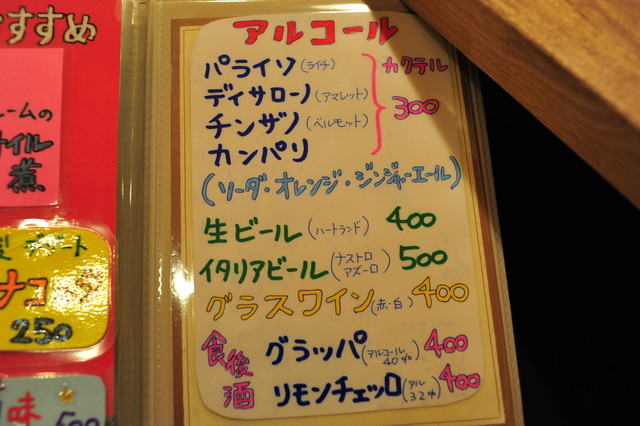 すすめ
ームの
イル
煮
デザート
ナコ
250
味
500
アルコール
パライソ(ライチ)
ディサローノ(アマレット)
チンザノ(ベルモット)
カンパリ
カクテル
300
(ソーダ・オレンジ・ジンジャーエール)
生ビール(ハートランド) 400
イタリアビール(ナストロ アズーロ) 500
グラスワイン(赤・白) 400
食後酒
グラッパ(アルコール 40%) 400
リモンチェッロ(アル 32%) 400